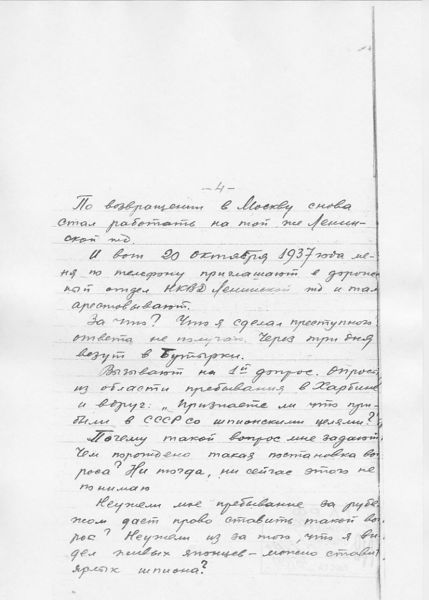 -4-
По возвращении в Москву снова
стал работать на той же Ленин-
ской жд.
И вот 20 октября 1937 года ме-
ня по телефону приглашают в дорож-
ный отдел НКВД Ленинской жд и там
арестовывают.
За что? Что я сделал преступного
ответа не получаю. Через три дня
везут в Бутырки.
Вызывают на 1й допрос. Опрос
из области пребывания в Харбине
и вдруг: „Признаете ли что при-
были в СССР со шпионскими целями?"
Почему такой вопрос мне задают
Чем порождено такая постановка во-
роса? Ни тогда, ни сейчас этого не
понимаю
Неужели мое пребывание за рубе-
жом дает право ставить такой во-
рос? Неужели из за того, что я ви-
дел живых японцев - можно ставить
ярлык шпиона?